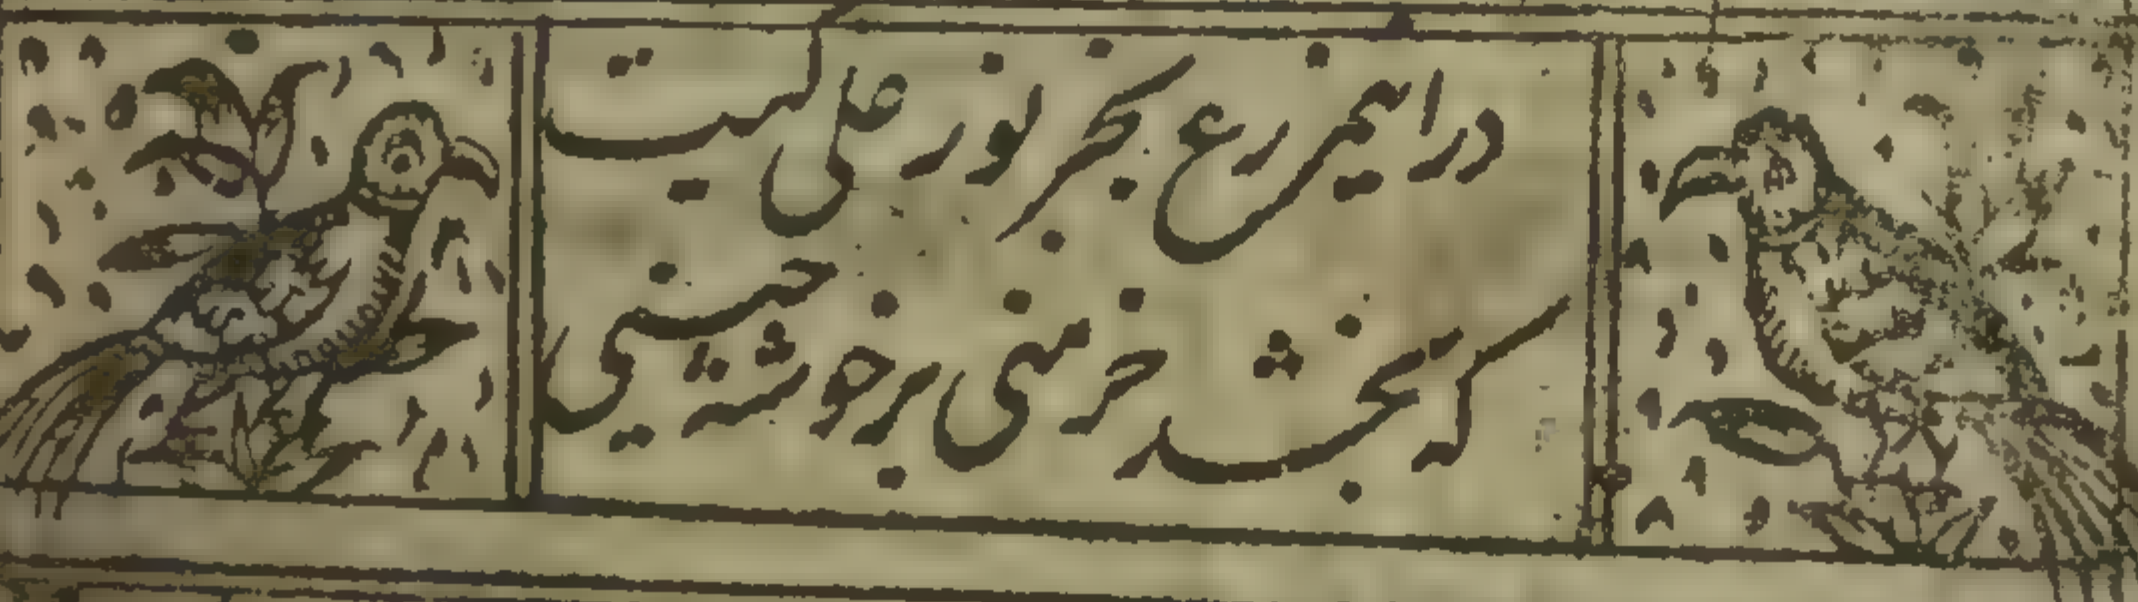 در این مزرع بجز نور علی کیست
که بخشد خرمنی بر خوشه چینی